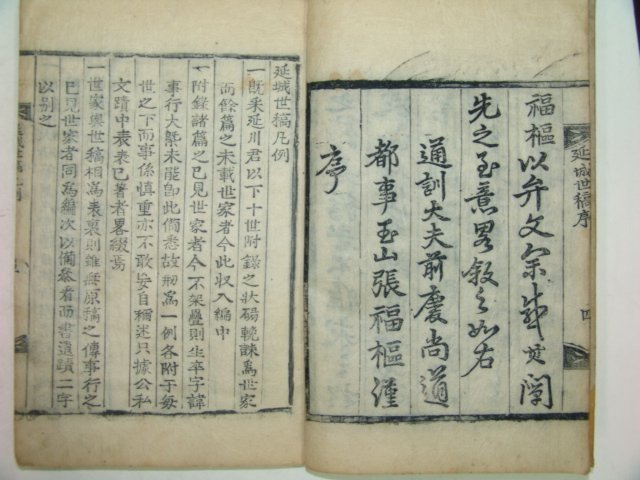 福樞以弁文
先之至意畧叙之如右
通訓大夫前慶尚道
都事玉山張福樞謹
序
延城世稿序
四
延城世稿凡例
一既采延川君以下十世附錄之狀碣輓誄爲世家
而餘篇之未載世家者今此收入編中
一附錄諸篇之已見世家者今不架疊則生卒字諱
事行大槩未能卽此備悉故刱爲一例各附于每
世之下而事係愼重亦不敢妄自稱述只據公私
文蹟中表表已著者畧綴焉
一世家與世稿相爲表裏則雖無原稿之傳事行之
已見世家者同爲編次以備叅看而書遺蹟二字
以别之